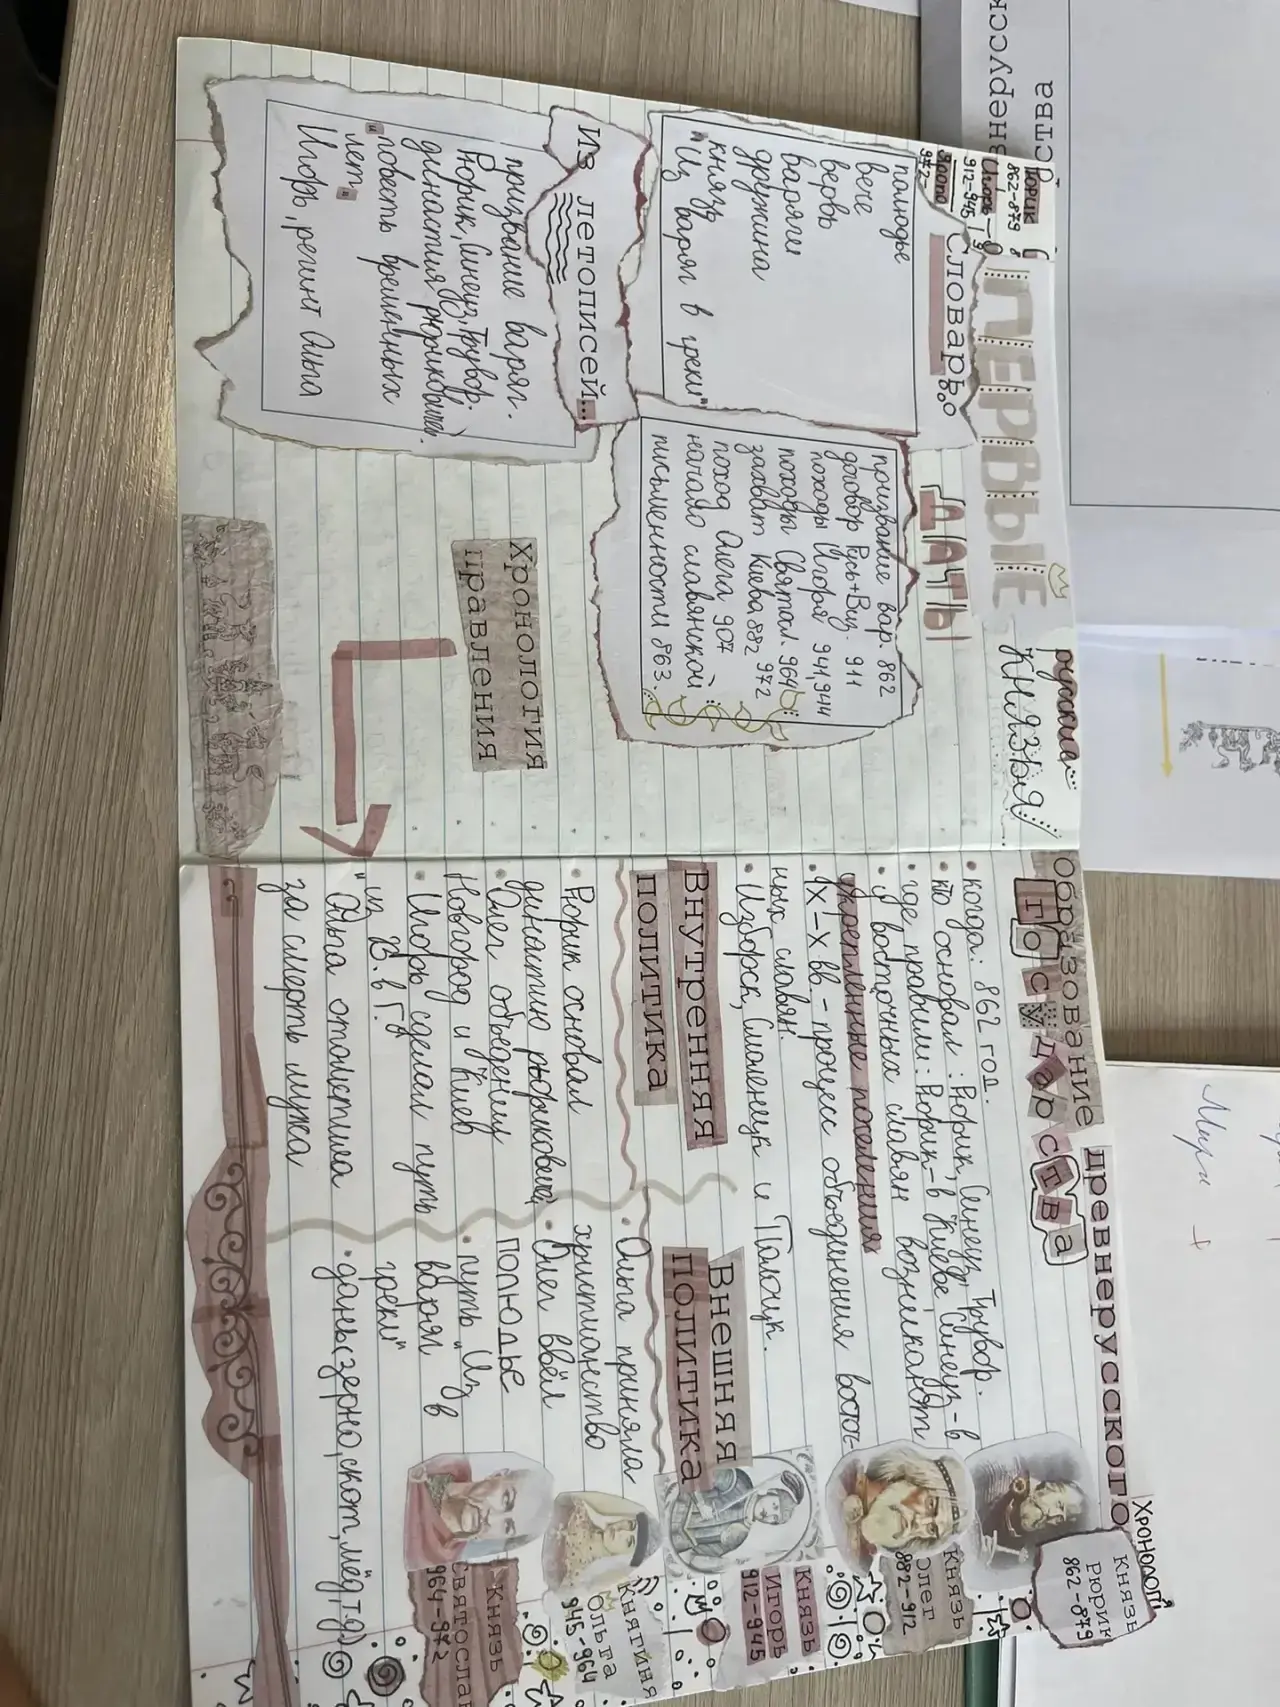 ПЕРВЫЕ
русские
КНЯЗЬЯ
Словарь
полюдье
вече
вервь
варяги
дружина
князь
"Из варяг в греки"
ДАТЫ
призвание вар. 862
договор Русь+Виз. 911
походы Игоря 941,944
походы Святосл. 964
972
захват Киева 882
поход Олега 907
начало славянской
письменности 863
Из летописей...
призвание варяг.
Рюрик, Синеус, Трувор.
династия рюриковичей.
"повесть временных
лет"
Игорь, регент Ольга
Хронология
правления
862-879
Игорь
912-945
972
Образование древнерусского
государства
когда: 862 год.
кто основал: Рюрик, Синеус, Трувор.
где правили: Рюрик-в Киеве, Синеус-в
у восточных славян возникают
укрепленные поселения
IX-X вв.-процесс объединения восточ-
ных славян.
Изборск, Смоленцк и Полоцк.
Внутренняя
политика
Рюрик основал
династию рюриковичей
Олег объеденил
Новгород и Киев
Игорь сделал путь
"из В. в Г."
Ольга отомстила
за смерть мужа
Внешняя
политика
Ольга приняла
христианство
Олег ввёл
полюдье
путь "Из
варяг в
греки"
дань(зерно,скот,мёд,т.д)
Хронологи
князь
рюрик
862-879
князь
олег
882-912
князь
Игорь
912-945
княгиня
ольга
945-964
князь
святослав
964-972
внерусск
ства
Мири +